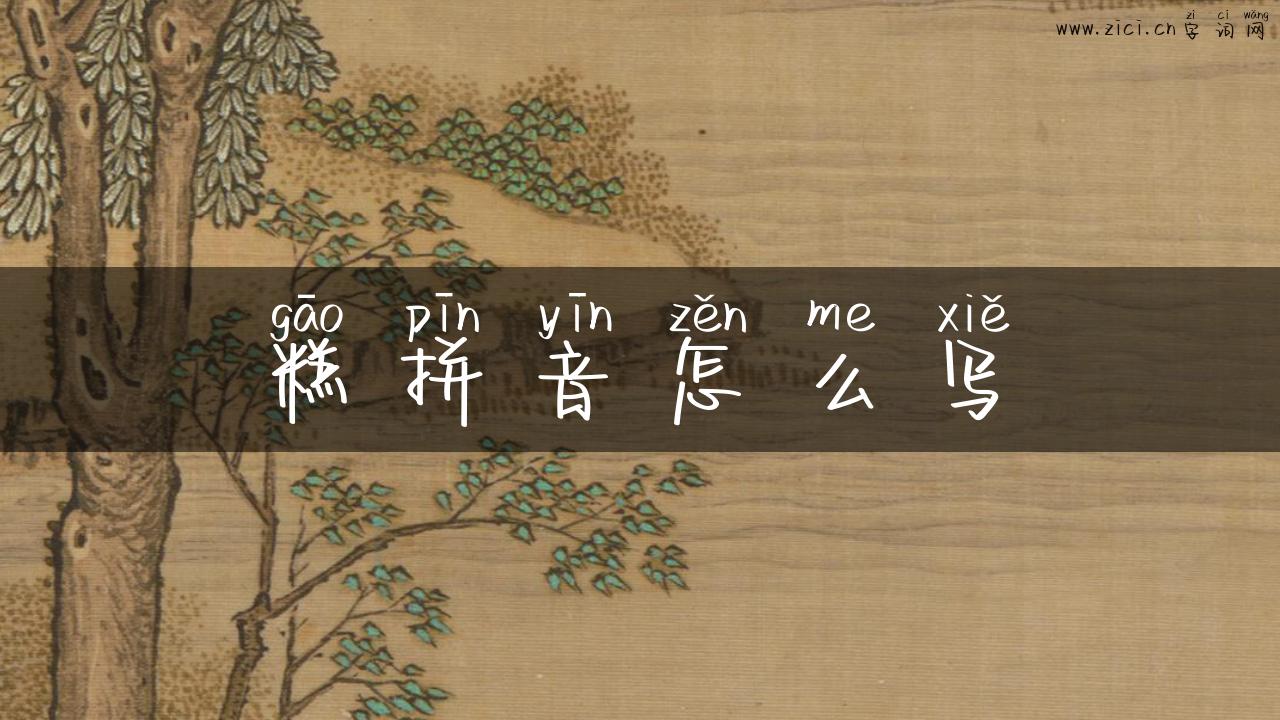 zì cí wǎng
www.zici.cn 字词网
gāo pīn yīn zěn me xiě
糕拼音怎么写